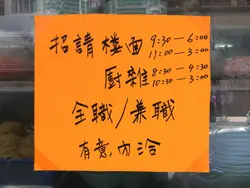 招請楼面 9:30—6:00
11:00—3:00
厨雜 8:30—4:30
10:30—3:00
全職/兼職
有意,內洽